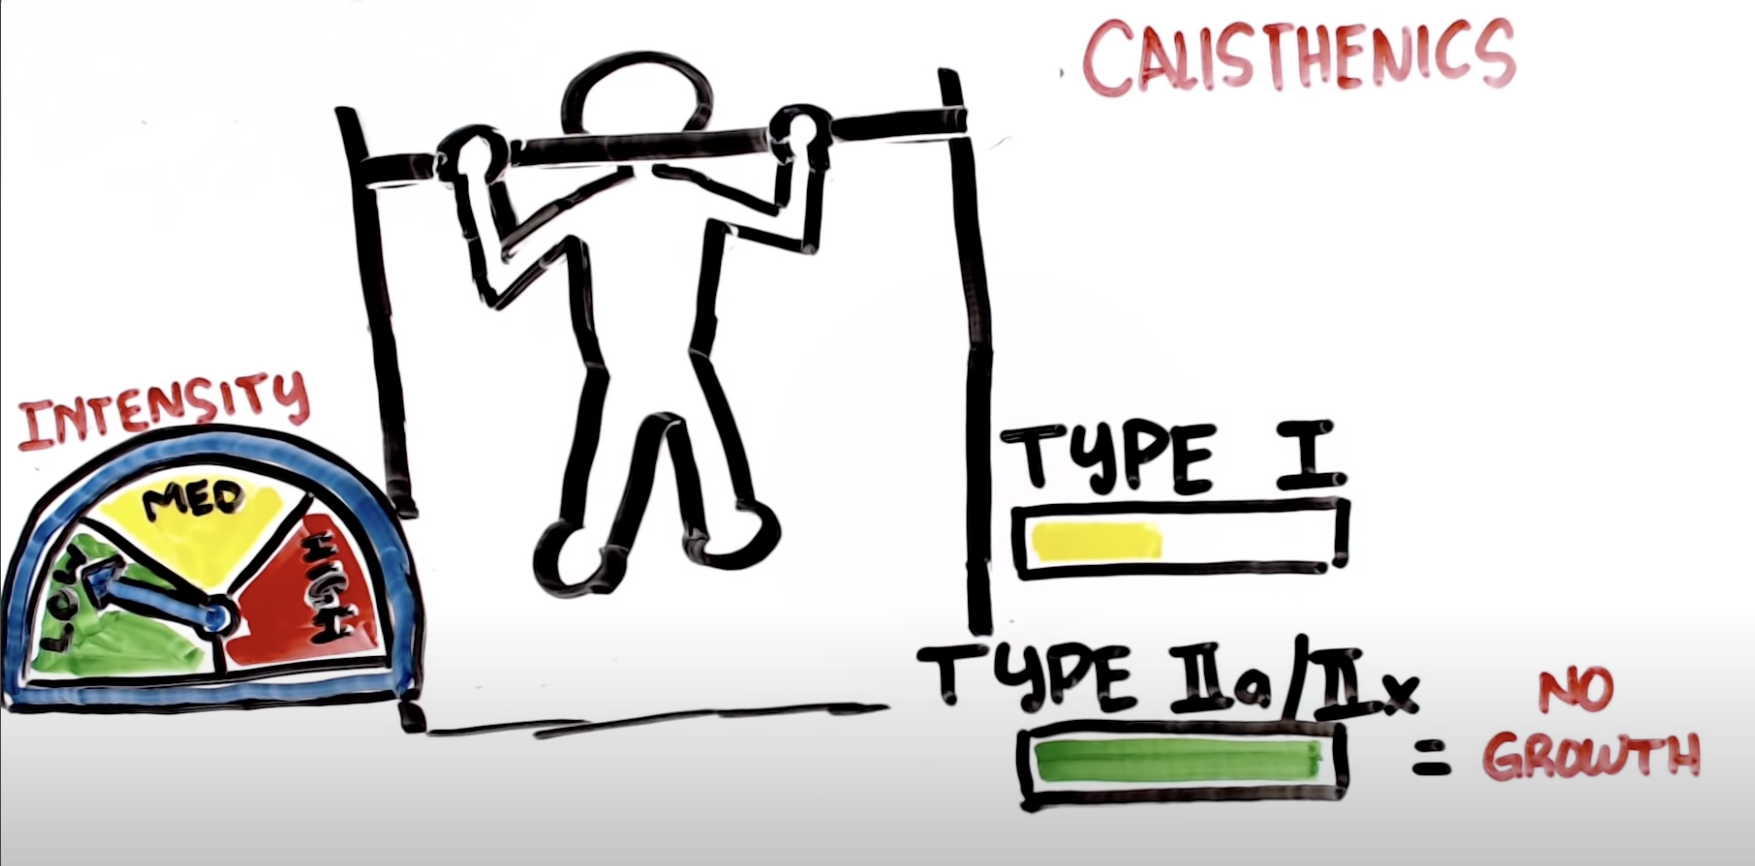 CALISTHENICS
INTENSITY
LOW
MED
HIGH
TYPE I
TYPE IIa/IIx
= NO
GROWTH